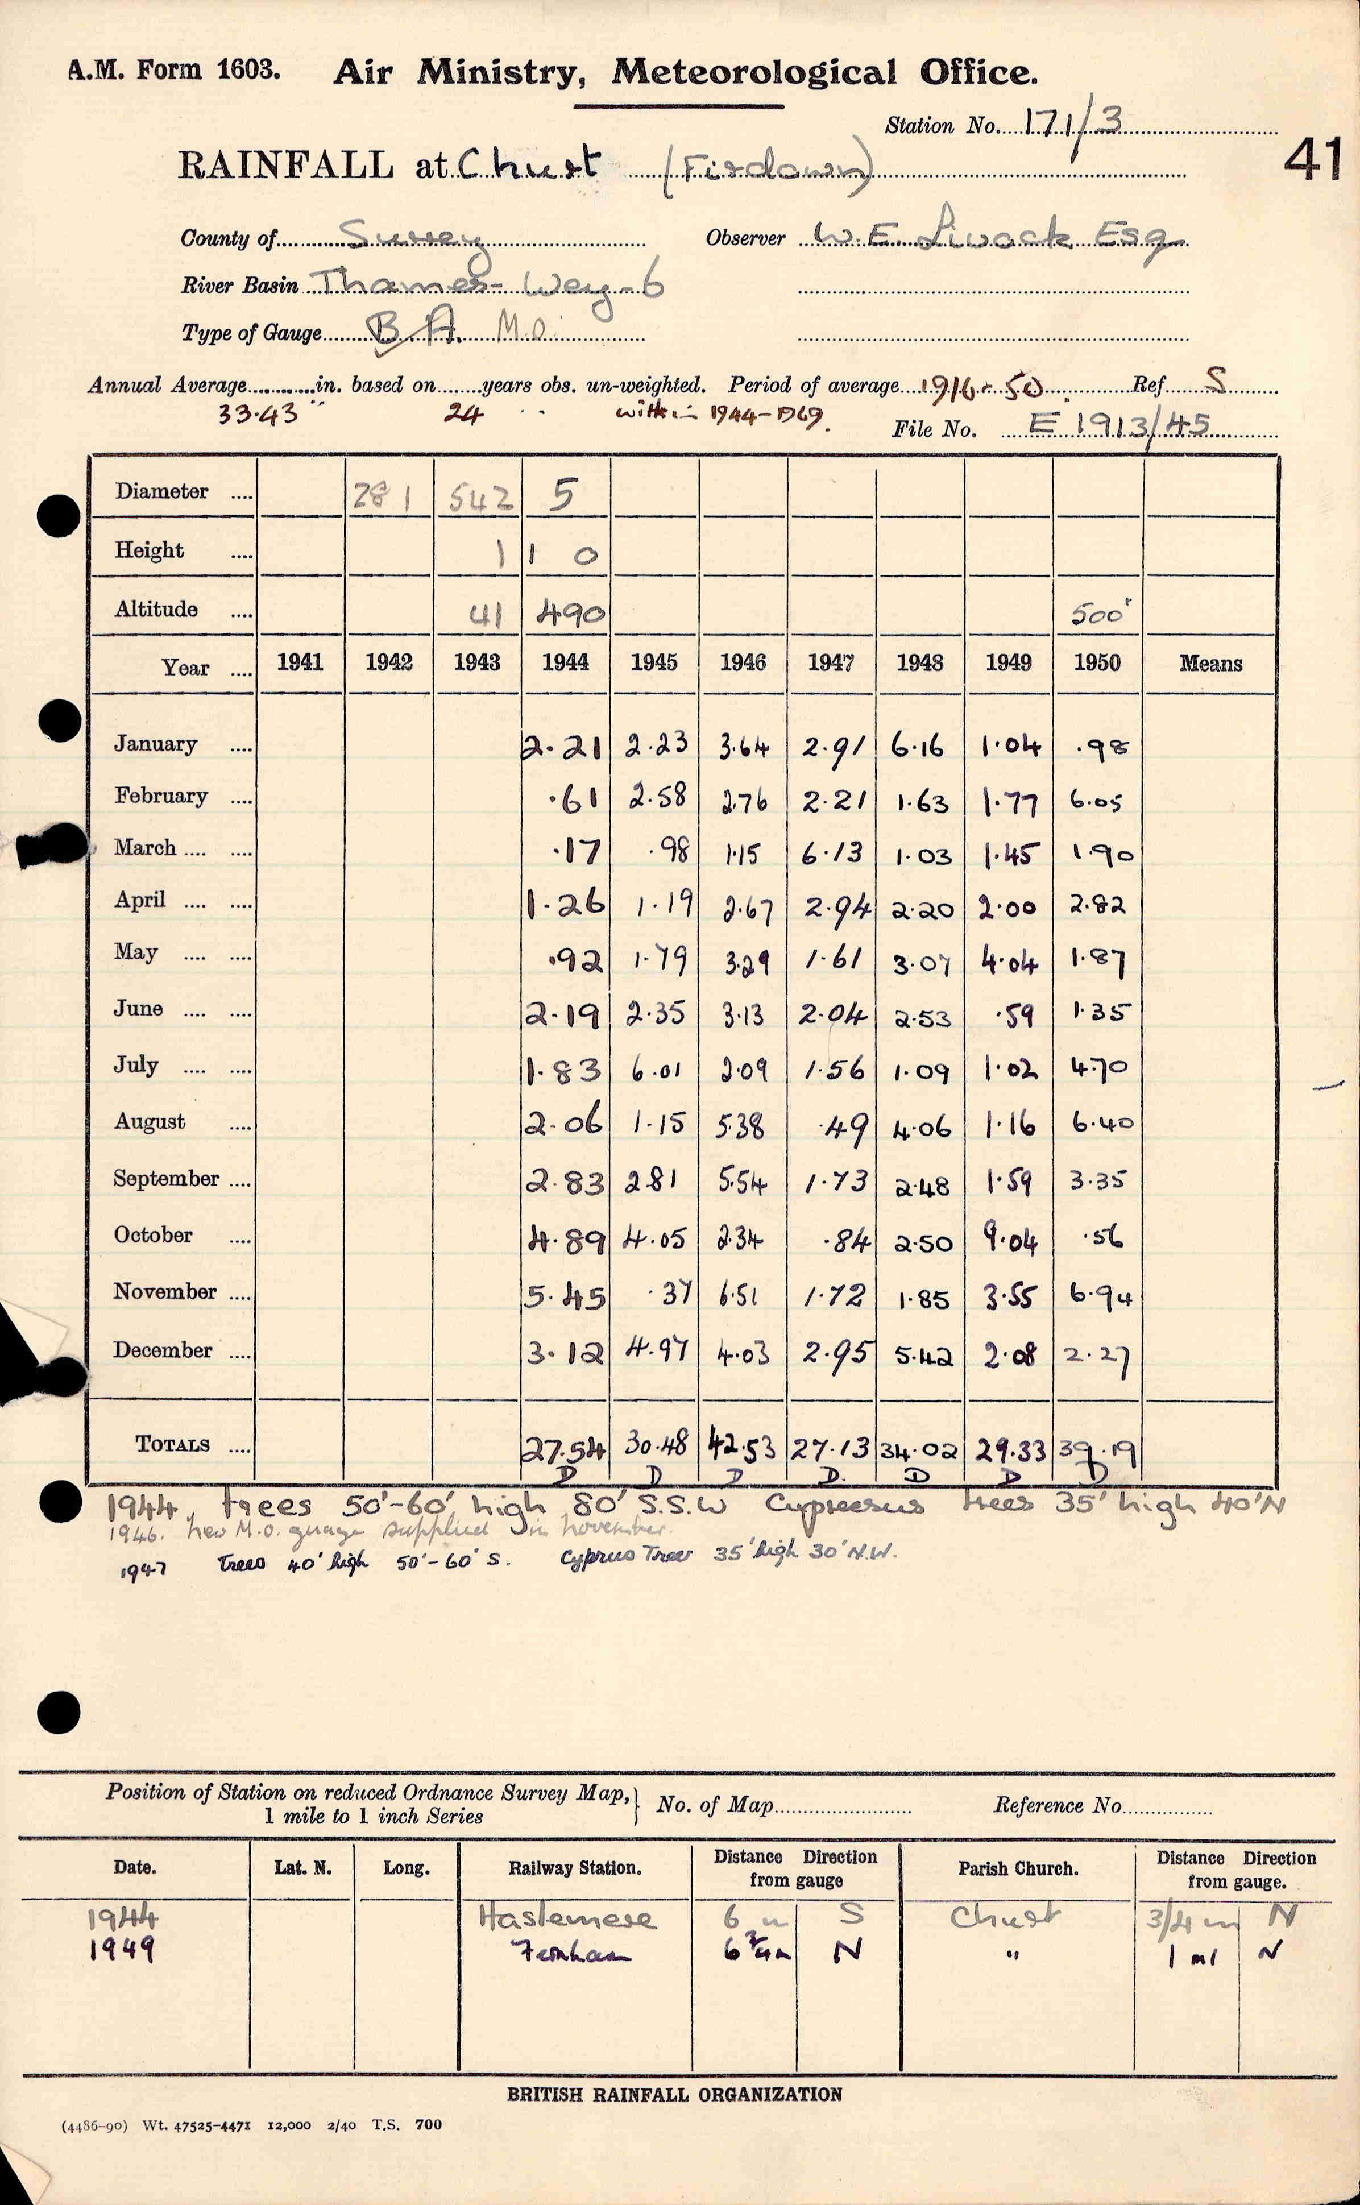 A.M. Form 1603. Air Ministry, Meteorological Office.
Station No. 171/3
41
RAINFALL at Churt (Firdown)
County of Surrey Observer W.E. Livock Esq
River Basin Thames - Wey - 6
Type of Gauge B A. M.O.
Annual Average in. based on years obs. un-weighted. Period of average 1916-50. Ref S
33.43" 24 " within 1944-1969.
File No. E 1913/45
Diameter 281 542 5
Height 1 1 0
Altitude 41 490 500'
Year 1941 1942 1943 1944 1945 1946 1947 1948 1949 1950 Means
January 2.21 2.23 3.64 2.91 6.16 1.04 .98
February .61 2.58 2.76 2.21 1.63 1.77 6.05
March .17 .98 1.15 6.13 1.03 1.45 1.90
April 1.26 1.19 2.67 2.94 2.20 2.00 2.82
May .92 1.79 3.29 1.61 3.07 4.04 1.87
June 2.19 2.35 3.13 2.04 2.53 .59 1.35
July 1.83 6.01 2.09 1.56 1.09 1.02 4.70
August 2.06 1.15 5.38 .49 4.06 1.16 6.40
September 2.83 2.81 5.54 1.73 2.48 1.59 3.35
October 4.89 4.05 2.34 .84 2.50 9.04 .56
November 5.45 .37 6.51 1.72 1.85 3.55 6.94
December 3.12 4.97 4.03 2.95 5.42 2.08 2.27
TOTALS 27.54 30.48 42.53 27.13 34.02 29.33 39.19
D D D D. D D D
1944. trees 50'-60' high 80' S.S.W Cypressus trees 35' high 40'N
1946. New M.O. guage supplied in november.
1947 Trees 40' high 50'-60' S. Cyprus Trees 35' high 30' N.W.
Position of Station on reduced Ordnance Survey Map, 1 mile to 1 inch Series } No. of Map Reference No.
Date. Lat. N. Long. Railway Station. Distance Direction from gauge Parish Church. Distance Direction from gauge.
1944 Haslemere 6 m S Churt 3/4 m N
1949 Farnham 6 3/4 m N " 1 ml N
BRITISH RAINFALL ORGANIZATION
(4486-90) Wt. 47525-4471 12,000 2/40 T.S. 700